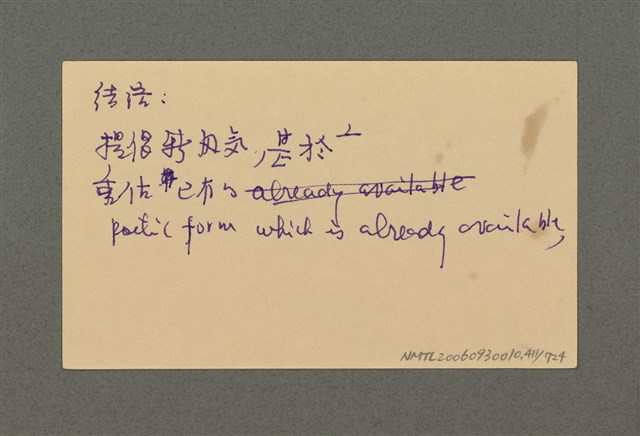 結語:
提倡新風気,基於
重估 已有的 already available
poetic form which is already available,
NMTL20060930010.411/724